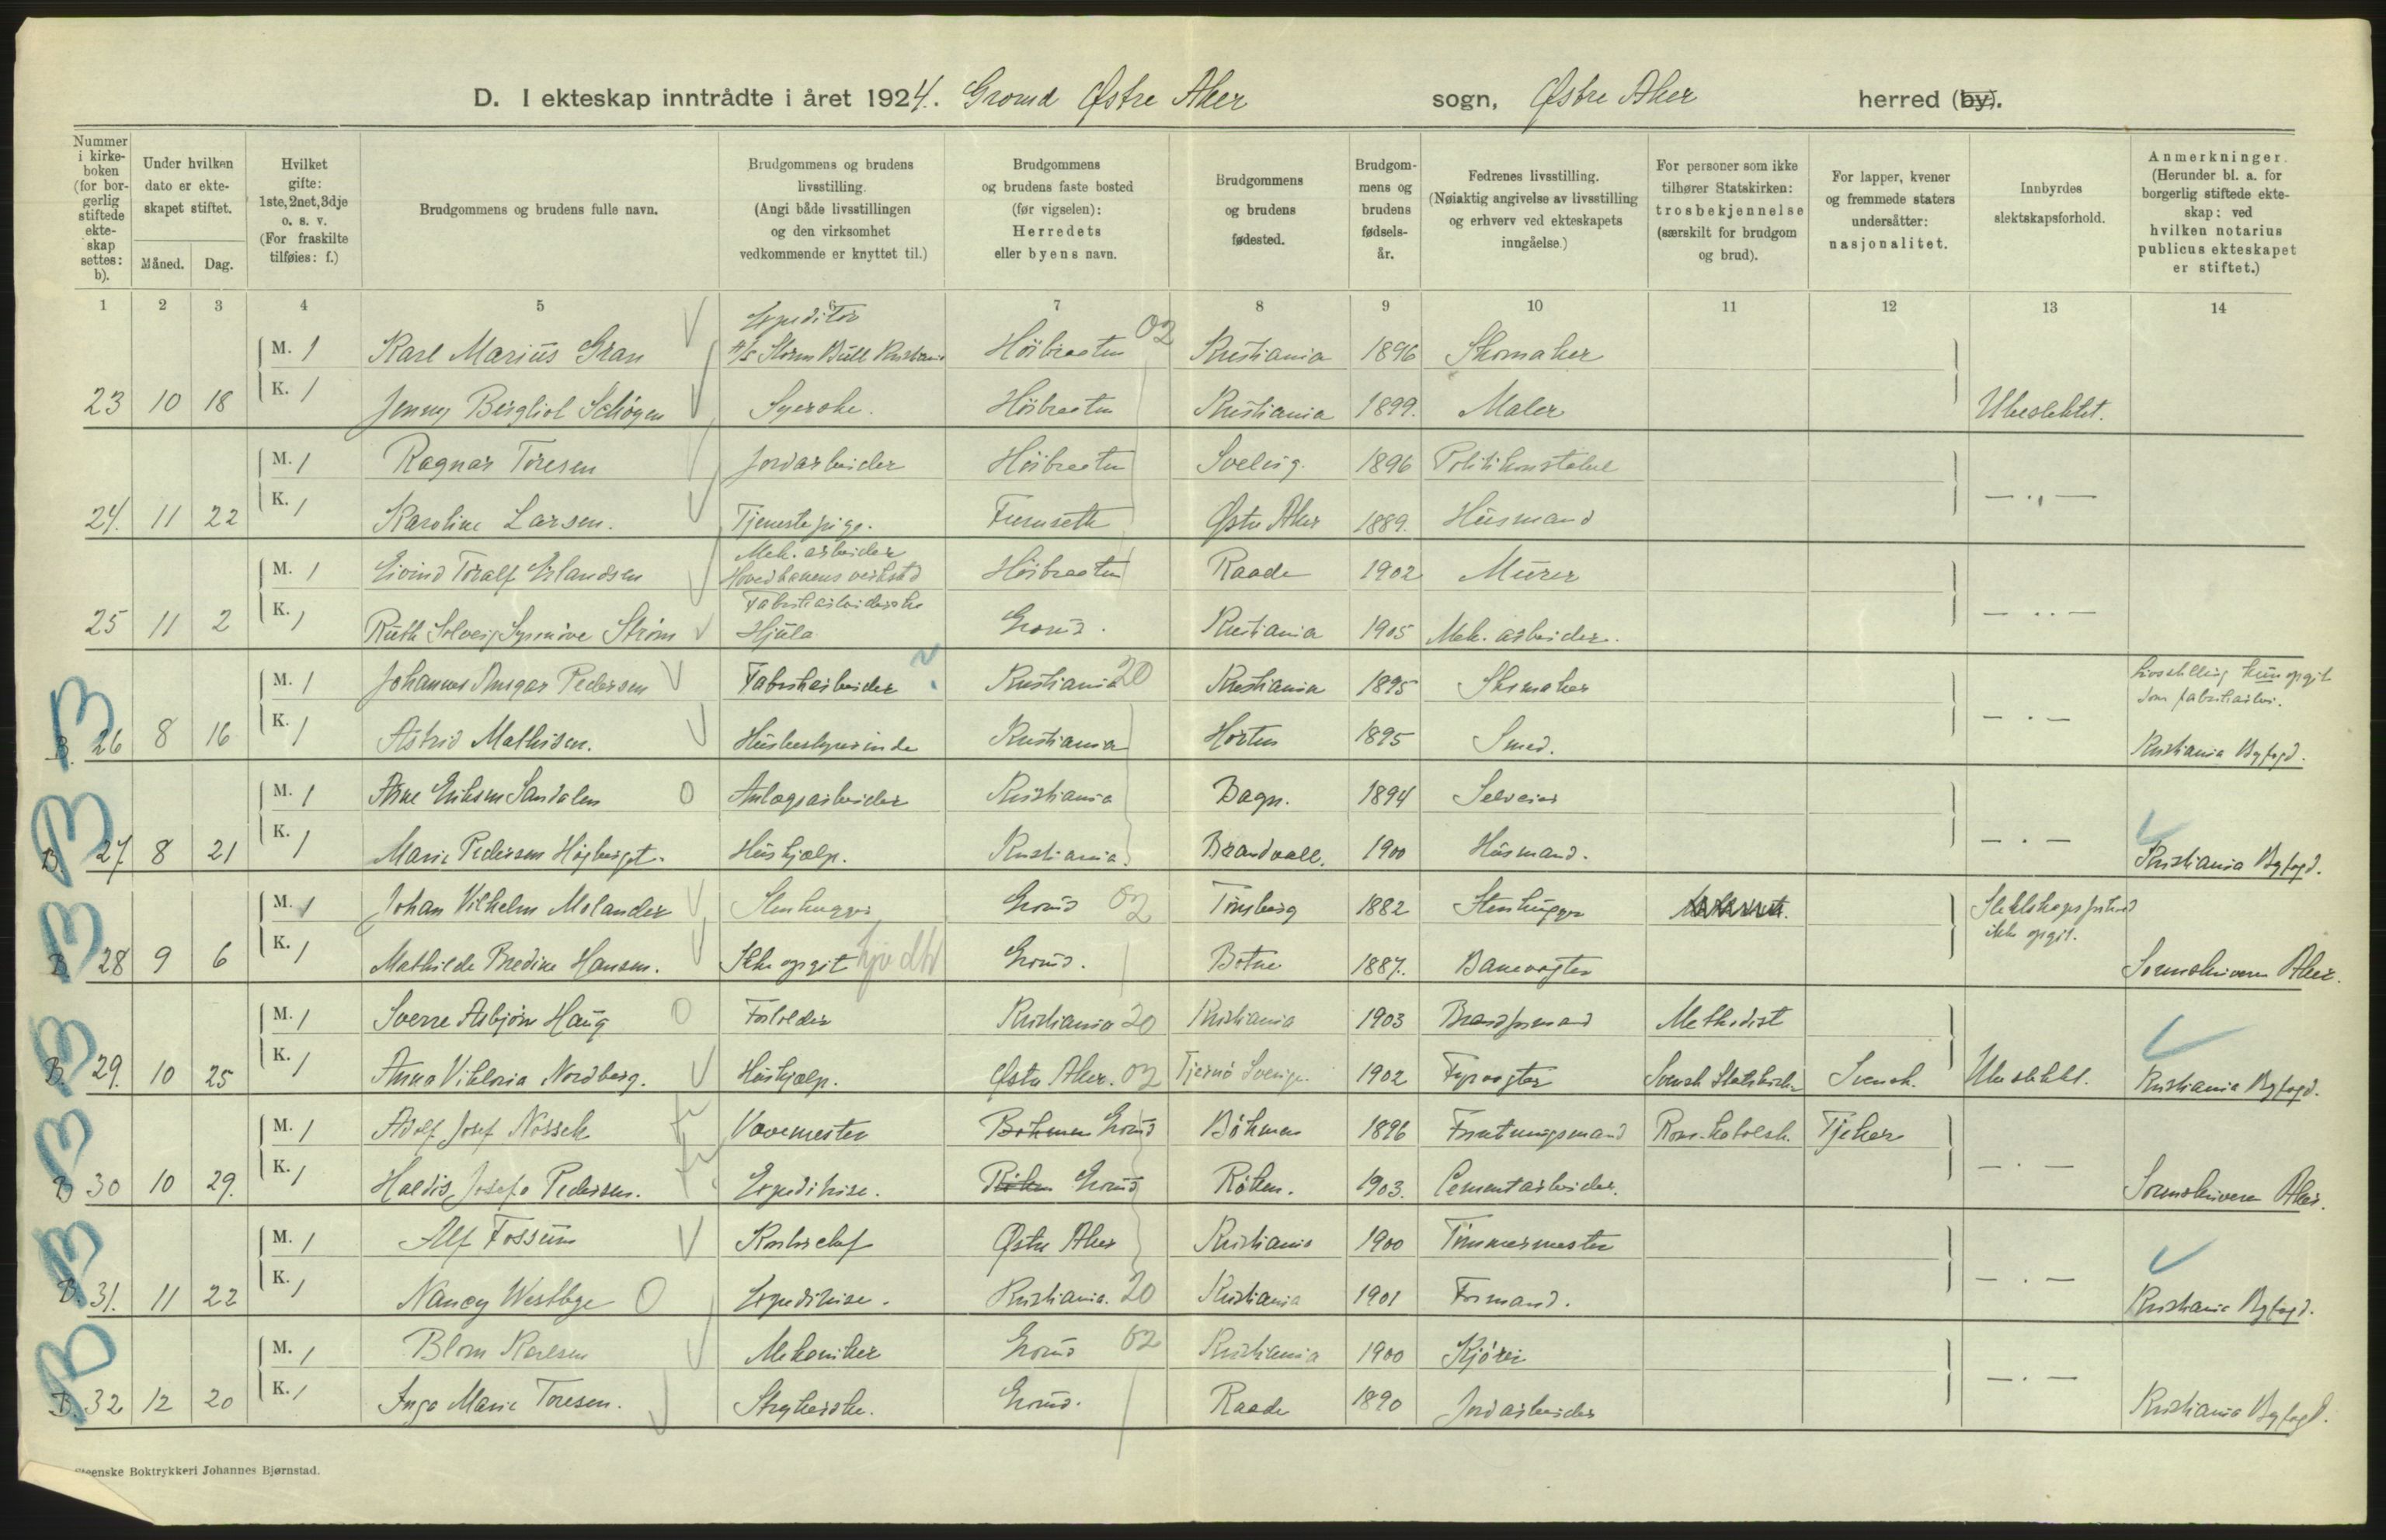 D. I ekteskap inntrådte i året 1924. Grorud Østre Aker sogn, Østre Aker herred (by).
Nummer i kirke-boken (for bor-gerlig stiftede ekte-skap settes: b).
Under hvilken dato er ekte-skapet stiftet.
Måned. Dag.
Hvilket gifte: 1ste, 2net, 3dje o. s. v. (For fraskilte tilføies: f.)
Brudgommens og brudens fulle navn.
Brudgommens og brudens livsstilling. (Angi både livsstillingen og den virksomhet vedkommende er knyttet til.)
Brudgommens og brudens faste bosted (før vigselen): Herredets eller byens navn.
Brudgommens og brudens fødested.
Brudgom-mens og brudens fødsels-år.
Fedrenes livsstilling. (Nøiaktig angivelse av livsstilling og erhverv ved ekteskapets inngåelse.)
For personer som ikke tilhører Statskirken: trosbekjennelse (særskilt for brudgom og brud).
For lapper, kvener og fremmede staters undersåtter: nasjonalitet.
Innbyrdes slektskapsforhold.
Anmerkninger. (Herunder bl. a. for borgerlig stiftede ekte-skap: ved hvilken notarius publicus ekteskapet er stiftet.)
1 2 3 4 5 6 7 8 9 10 11 12 13 14
Expeditør
M. 1 Karl Marius Gran A/S Storm Bull Kristiania Høibraaten 02 Kristiania 1896 Skomaker
23 10 18 K. 1 Jenny Bergliot Schøgen Syerske. Høibraaten Kristiania 1899. Maler Ubeslektet.
M. 1 Ragnar Toresen Jordarbeider Høibraaten Svelvig. 1896 Politikonstabel
24. 11 22 K. 1 Karoline Larsen. Tjenestepige. Furuseth Østre Aker 1889. Husmand — „ —
Mek. arbeider
M. 1 Eivind Toralf Erlandsen Hovedbanens verksted Høibraaten Raade 1902 Murer
Fabrikarbeiderske
25 11 2 K. 1 Ruth Solveig Synnøve Strøm Hjula Grorud. Kristiania 1905 Mek. arbeider. — „ —
M. 1 Johannes Ansgar Pedersen Fabrikarbeider Kristiania 20 Kristiania 1895 Skomaker Livsstilling kun opgit som fabrikarbei.
B. 26 8 16 K. 1 Astrid Mathisen. Husbestyrerinde Kristiania Horten 1895 Smed. — „ — Kristiania Byfogd.
M. 1 Arne Eriksen Sandalen Anlægsarbeider Kristiania Bagn. 1894 Selveier
B. 27 8 21 K. 1 Marie Pedersen Høgberget. Hushjælp. Kristiania. Brandvall. 1900 Husmand. — „ — Kristiania Byfogd.
M. 1 Johan Vilhelm Molander Stenhugger Grorud 02 Tønsberg 1882 Stenhugger Slektskapsforhold ikke opgit.
B. 28 9 6 K. 1 Mathilde Bredine Hansen. Ikke opgit Grorud. Botne 1887. Banevogter Sorenskriveren Aker.
M. 1 Sverre Asbjørn Haug Forlolder Kristiania 20 Kristiania 1903 Brandformand Methodist
B. 29. 10 25 K. 1 Anna Viktoria Nordberg. Hushjælp. Østre Aker. 02 Tjernö Sverige. 1902 Fyrvogter Svensk Statskirke Svensk. Ubeslektet. Kristiania Byfogd.
M. 1 Adolf Josef Nossek Vævemester Böhmen Grorud Böhmen 1896 Forretningsmand Rom. katolsk. Tjeker
B 30 10 29. K. 1 Haldis Josefa Pedersen. Expeditrise. Røken Grorud Røken. 1903. Cementarbeider. — „ — Sorenskriveren Aker.
M. 1 Alf Fossum Kontorchef Østre Aker Kristiania 1900 Tømmermester
B. 31. 11 22 K. 1 Nancy Westbye Expeditrise. Kristiania. 20 Kristiania 1901 Formand. — „ — Kristiania Byfogd.
M. 1 Blom Karlsen Mekaniker Grorud 02 Kristiania 1900 Kjører
B. 32 12 20 K. 1 Inga Marie Toresen. Strykerske. Grorud. Raade 1890 Jordarbeider — „ — Kristiania Byfogd.
Steenske Boktrykkeri Johannes Bjørnstad.